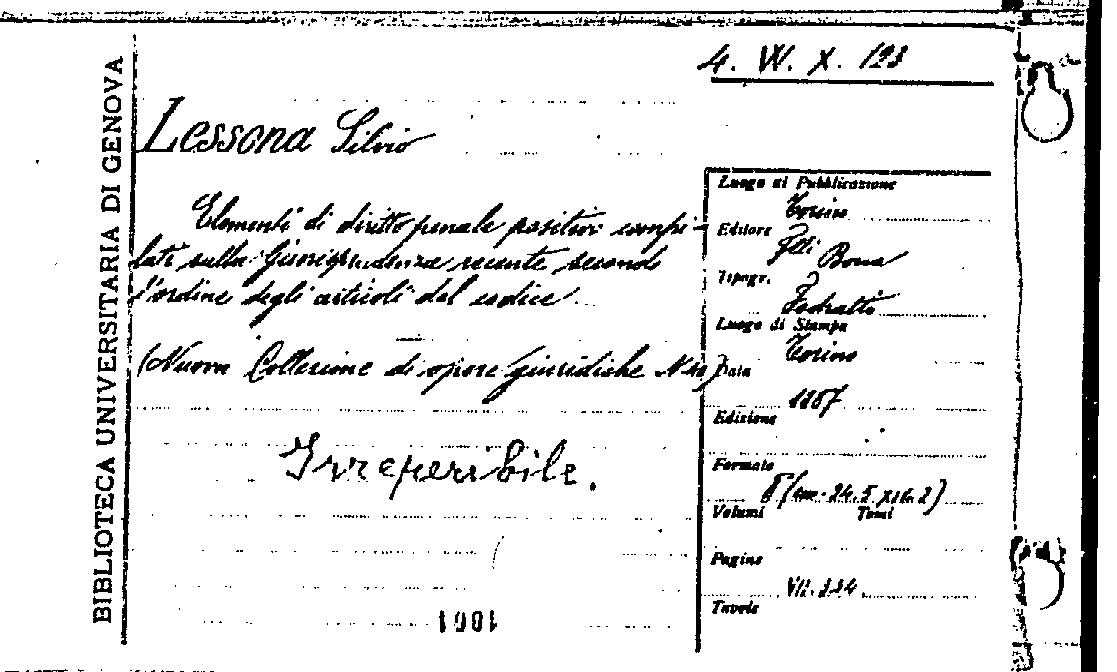 4. W. X. 123
BIBLIOTECA UNIVERSITARIA DI GENOVA
Lessona Silvio
Elementi di diritto penale positivo compi-
lati sulla giurisprudenza recente secondo
l'ordine degli articoli del codice
(Nuova Collezione di opere giuridiche N.
Irreperibile.
1901
Luogo di Pubblicazione
Torino
Editore
F.lli Bocca
Tipogr.
Fodratti
Luogo di Stampa
Torino
Data
Edizione
Formato
8° (cm. 24.5 x 16.2)
Volumi Tomi
Pagine
VII.
Tavole